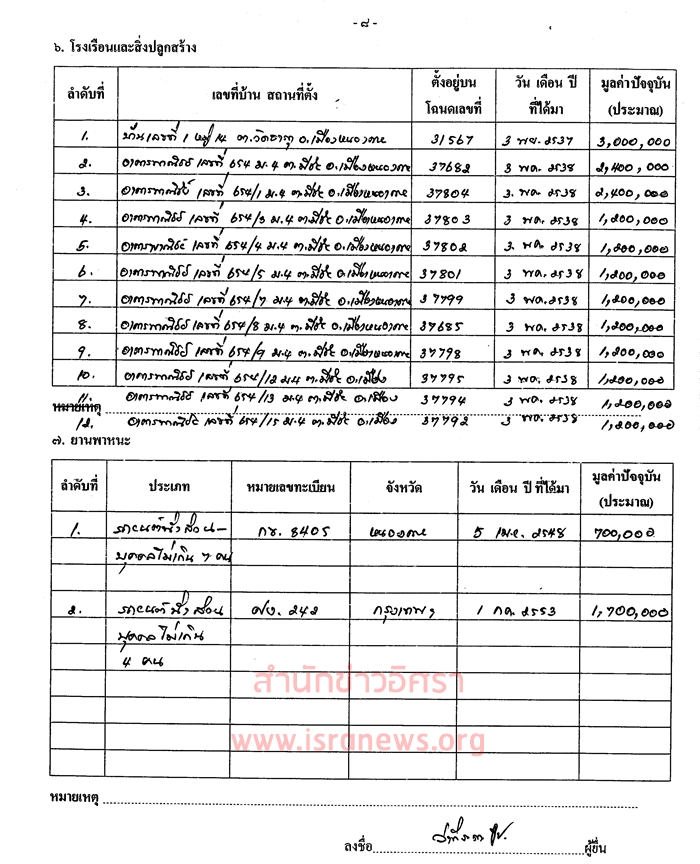 - ๘ -
๖. โรงเรือนและสิ่งปลูกสร้าง
ลำดับที่ เลขที่บ้าน สถานที่ตั้ง ตั้งอยู่บนโฉนดเลขที่ วัน เดือน ปี ที่ได้มา มูลค่าปัจจุบัน (ประมาณ)
1. บ้านเลขที่ 1 หมู่ 14 ต.วัดธาตุ อ.เมืองหนองคาย 31567 3 พย. 2537 3,000,000
2. อาคารพาณิชย์ เลขที่ 654 ม.4 ต.มีชัย อ.เมืองหนองคาย 37682 3 พค. 2538 2,400,000
3. อาคารพาณิชย์ เลขที่ 654/1 ม.4 ต.มีชัย อ.เมืองหนองคาย 37804 3. พค. 2538 2,400,000
4. อาคารพาณิชย์ เลขที่ 654/3 ม.4 ต.มีชัย อ.เมืองหนองคาย 37803 3 พค. 2538 1,200,000
5. อาคารพาณิชย์ เลขที่ 654/4 ม.4 ต.มีชัย อ.เมืองหนองคาย 37802 3. พค. 2538 1,200,000
6. อาคารพาณิชย์ เลขที่ 654/5 ม.4 ต.มีชัย อ.เมืองหนองคาย 37801 3 พค. 2538 1,200,000
7. อาคารพาณิชย์ เลขที่ 654/7 ม.4 ต.มีชัย อ.เมืองหนองคาย 37799 3 พค. 2538 1,200,000
8. อาคารพาณิชย์ เลขที่ 654/8 ม.4 ต.มีชัย อ.เมืองหนองคาย 37685 3 พค. 2538 1,200,000
9. อาคารพาณิชย์ เลขที่ 654/9 ม.4 ต.มีชัย อ.เมืองหนองคาย 37798 3 พค. 2538 1,200,000
10. อาคารพาณิชย์ เลขที่ 654/12 ม.4 ต.มีชัย อ.เมือง 37795 3 พค. 2538 1,200,000
11. อาคารพาณิชย์ เลขที่ 654/13 ม.4 ต.มีชัย อ.เมือง 37794 3 พค. 2538 1,200,000
หมายเหตุ
12. อาคารพาณิชย์ เลขที่ 654/15 ม.4 ต.มีชัย อ.เมือง 37792 3 พค. 2538 1,200,000
๗. ยานพาหนะ
ลำดับที่ ประเภท หมายเลขทะเบียน จังหวัด วัน เดือน ปี ที่ได้มา มูลค่าปัจจุบัน (ประมาณ)
1. รถยนต์นั่งส่วน- กข. 8405 หนองคาย 5 เม.ย. 2548 700,000
บุคคลไม่เกิน 7 คน
2. รถยนต์นั่งส่วน 242 กรุงเทพฯ 1 กค. 2553 1,700,000
บุคคลไม่เกิน
4 คน
สำนักข่าวอิศรา
www.isranews.org
หมายเหตุ
ลงชื่อ ผู้ยื่น